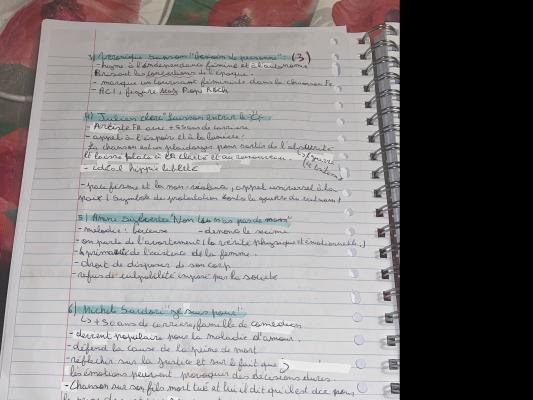 3) Véronique Sanson "Besoin de personne": (3)
- hymne à l'indépendance féminine et à l'autonomie
Brisant les conventions de l'époque.
- marque un tournant féministe dans la chanson Fr
- AC1, figure Pop Rock
4) Julien Clerc "Laissons entrer le
- Artiste FR avec + 55 ans de carrière
- appel à l'espoir et à la lumière
La chanson est un plaidoyer pour sortir de l'obscurité
et laisse place à la clarté et au renouveau.
- idéal hippie liberté
- pacifisme et la non-violence, appel universel à la
paix (symbole de protestation contre la guerre du vietnam)
5) Anne Sylvestre "Non tu n'as pas de nom"
- mélodie: berceuse - dénonce le
- on parle de l'avortement (la vérité physique et émotionnelle.)
- de la femme.
- droit de disposer de son corp
- refus de culpabilité imposé par la société
6) Michel Sardou "Je suis pour"
↳ + 50 ans de carrière, famille de comédien
- devient populaire pour la maladie d'amour.
- défend la cause de la peine de mort
- réfléchir sur la justice et sur le fait que
les émotions peuvent provoquer des décisions dures.
- Chanson sur son fils mort tué et lui il dit qu'il est dcc pour